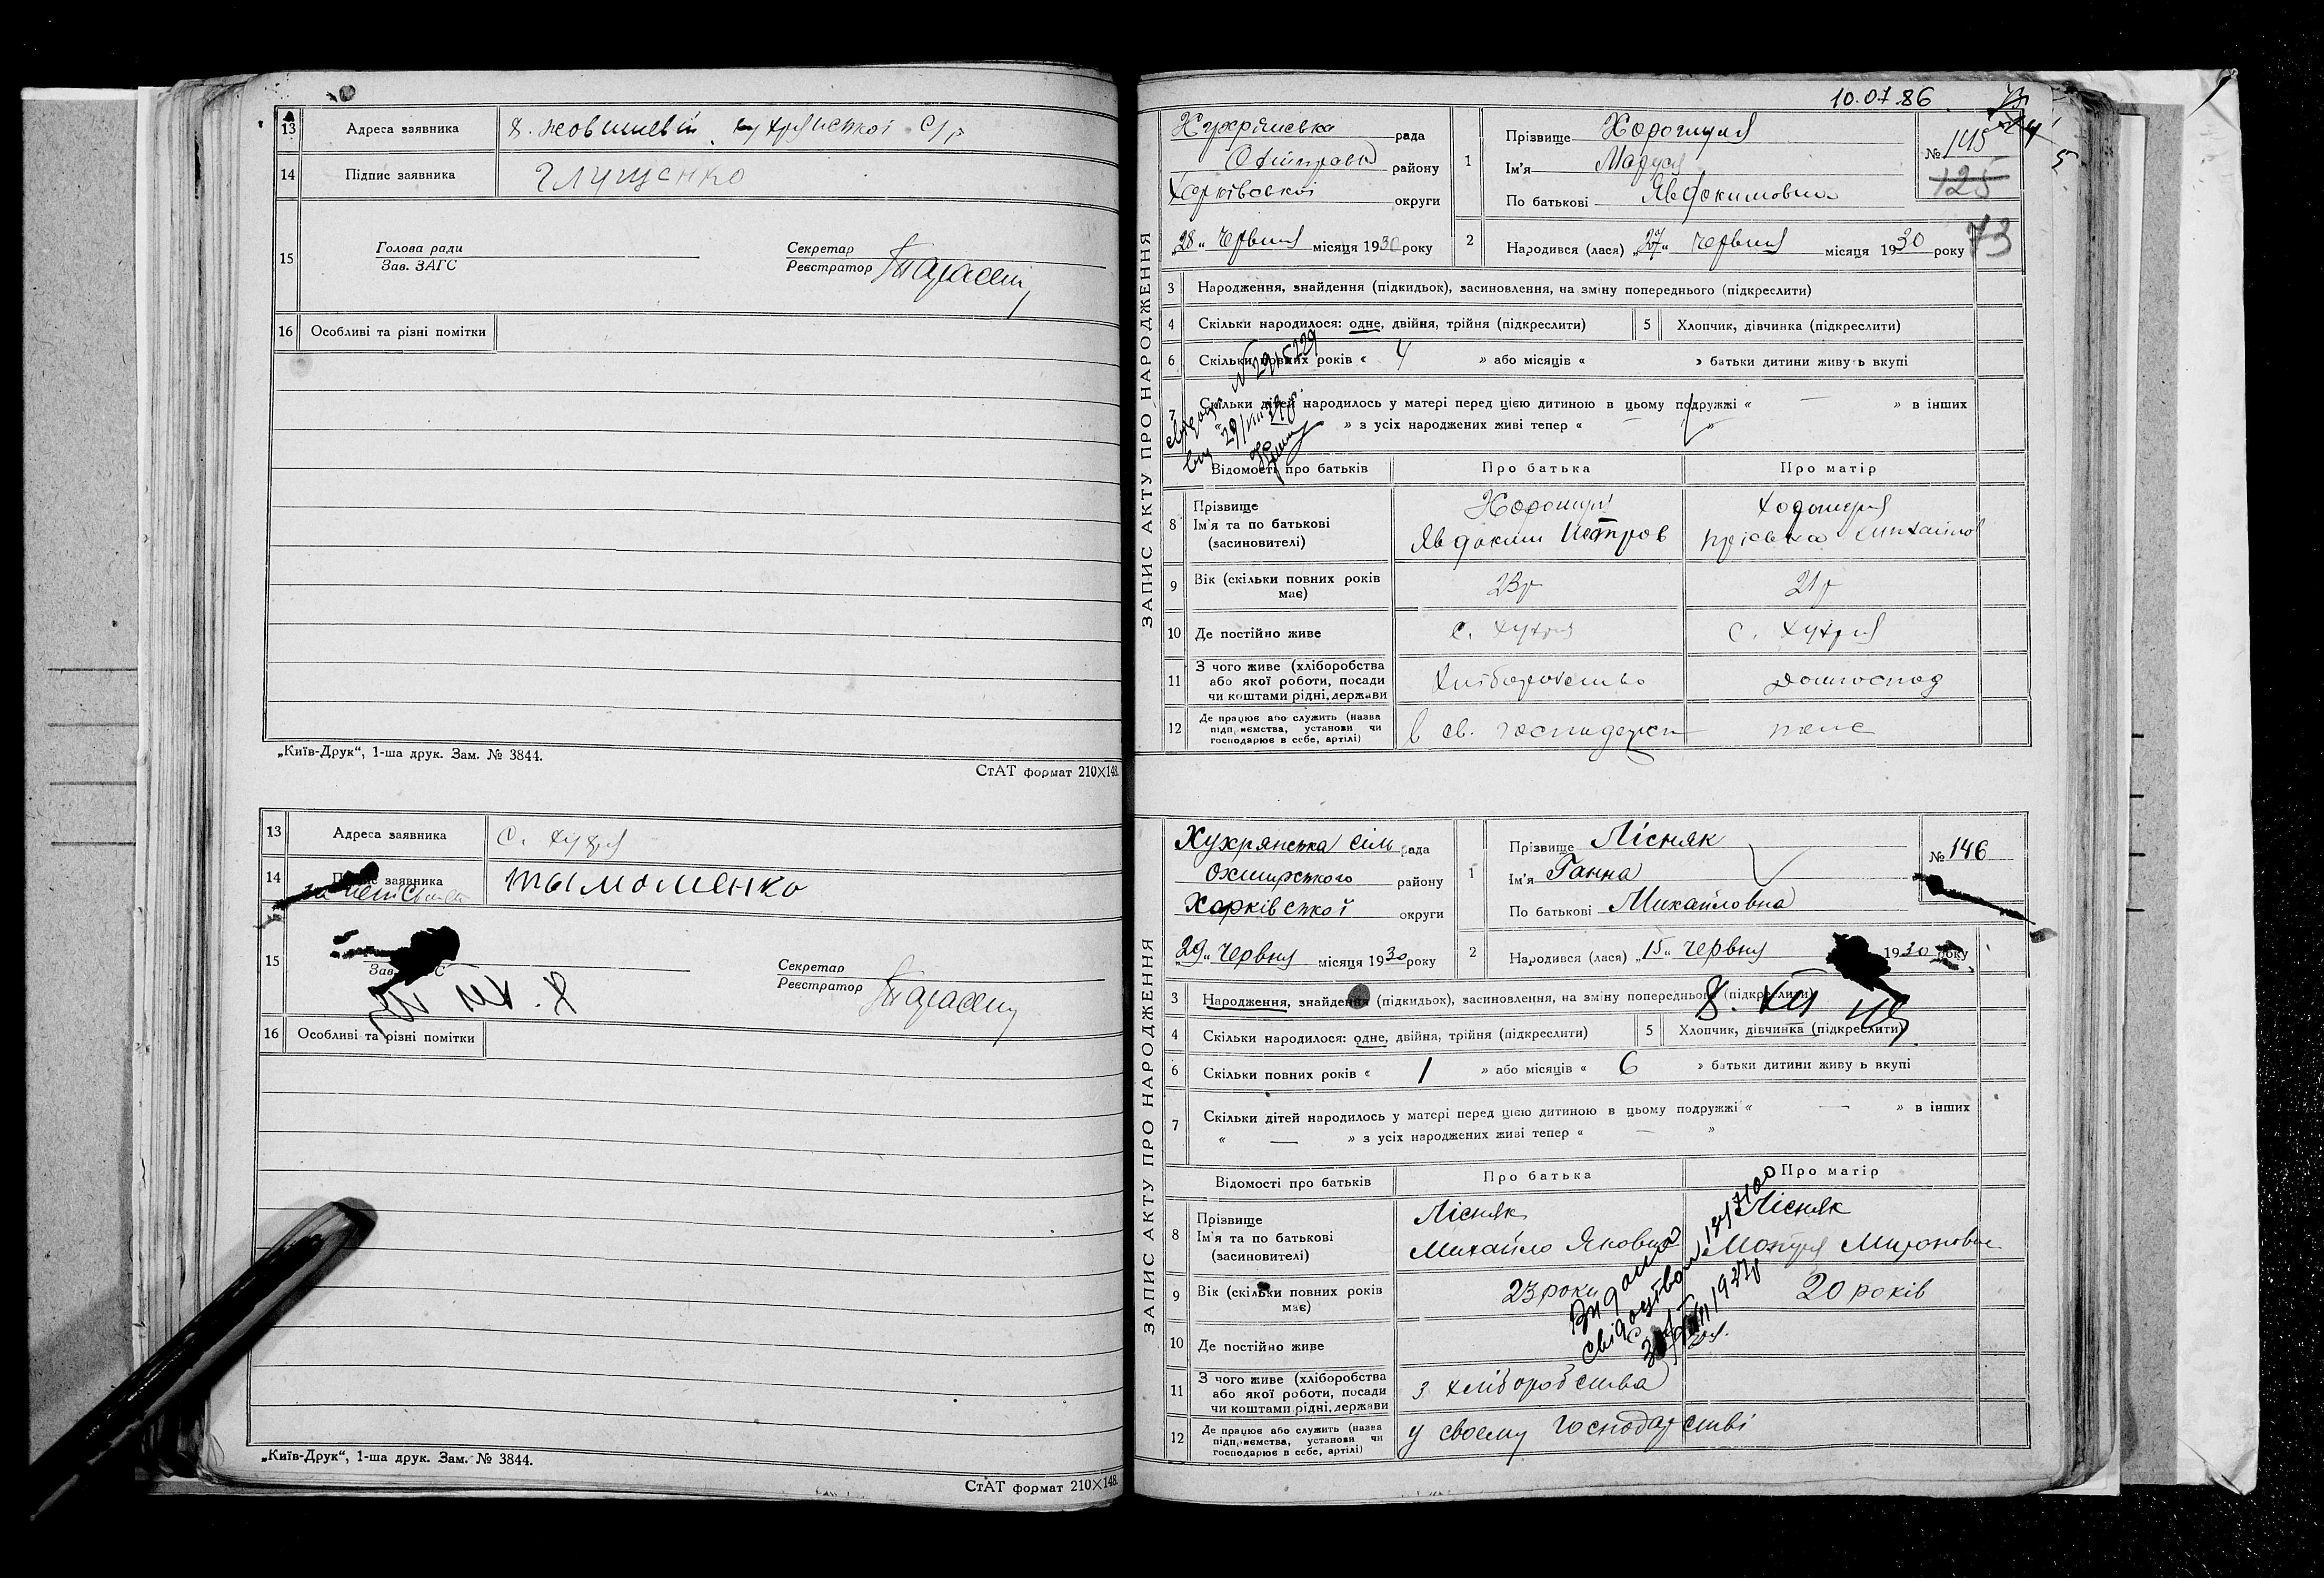 13 Адреса заявника х.
14 Підпис заявника Глущенко
15 Голова ради
Зав. ЗАГС
Секретар
Реєстратор
16 Особливі та різні помітки
„Київ-Друк“, 1-ша друк. Зам. № 3844.
СтАТ формат 210×148.
13 Адреса заявника с. Хухря
14 заявника Тымоменко
15 Зав.
Секретар
Реєстратор
16 Особливі та різні помітки
„Київ-Друк“, 1-ша друк. Зам. № 3844.
СтАТ формат 210×148.
10.07.86
ЗАПИС АКТУ ПРО НАРОДЖЕННЯ
рада
району
Харківської округи
„28“ червня місяця 1930 року
1 Прізвище
Ім'я Маруся
По батькові Явдокимовна
№ 145
125
73
2 Народився (лася) „27“ червня місяця 1930 року
3 Народження, знайдення (підкидьок), засиновлення, на зміну попереднього (підкреслити)
4 Скільки народилося: одне, двійня, трійня (підкреслити)
5 Хлопчик, дівчинка (підкреслити)
6 Скільки повних років « 4 » або місяців « » батьки дитини живуть вкупі
7 Скільки дітей народилось у матері перед цією дитиною в цьому подружжі « — » в інших
» з усіх народжених живі тепер « — »
Відомості про батьків Про батька Про матір
8 Прізвище
Ім'я та по батькові
(засиновителі)
Явдоким Петров
9 Вік (скільки повних років має) 23р 21р
10 Де постійно живе с. Хухря с. Хухря
11 З чого живе (хліборобства
або якої роботи, посади
чи коштами рідні, держави
домогоспод
12 Де працює або служить (назва
підприємства, установи чи
господарює в себе, артілі)
в св. господарст теж
ЗАПИС АКТУ ПРО НАРОДЖЕННЯ
Хухрянська сіль рада
Охтирського району
Харківської округи
„29“ червня місяця 1930 року
1 Прізвище Лісняк
Ім'я Ганна
По батькові Михайловна
№ 146
2 Народився (лася) „15“ червня 1930 року
3 Народження, знайдення (підкидьок), засиновлення, на зміну попереднього (підкреслити)
8. XII
4 Скільки народилося: одне, двійня, трійня (підкреслити)
5 Хлопчик, дівчинка (підкреслити)
6 Скільки повних років « 1 » або місяців « 6 » батьки дитини живуть вкупі
7 Скільки дітей народилось у матері перед цією дитиною в цьому подружжі « — » в інших
« — » з усіх народжених живі тепер « — »
Відомості про батьків Про батька Про матір
8 Прізвище
Ім'я та по батькові
(засиновителі)
Лісняк Лісняк
Михайло Якович Мотря Мироновна
9 Вік (скільки повних років має) 23 роки 20 років
Видано
свідоцтво
10 Де постійно живе
11 З чого живе (хліборобства
або якої роботи, посади
чи коштами рідні, держави
з хліборобства
12 Де працює або служить (назва
підприємства, установи чи
господарює в себе, артілі)
у своему господарстві